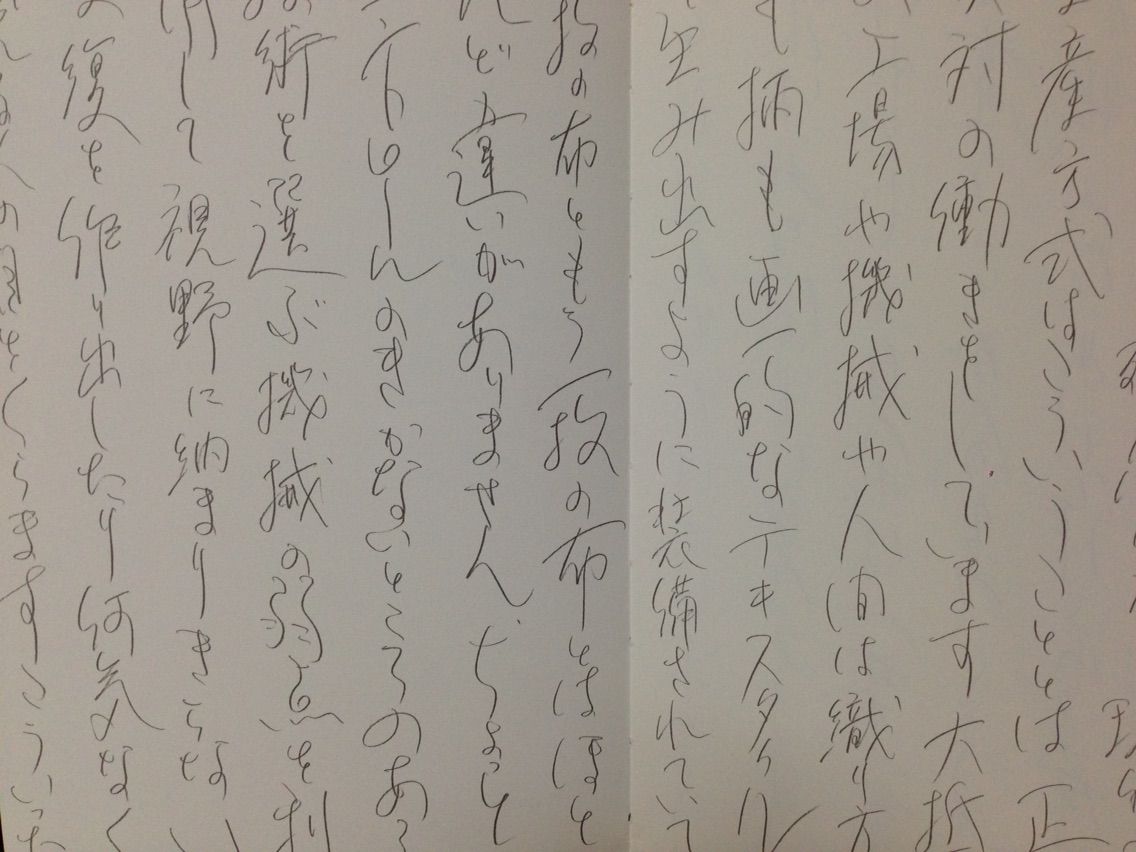 産方式はこういうこととは正
対の働きをしています大抵
工場や機械や人間は織り方
も柄も画一的なテキスタイル
生み出すように装備されていて
枚の布ともう一枚の布とはほと
んど違いがありませんちょっと
のきかないところのある
術を選ぶ機械の弱点を利
用して視野に納まりきらない
復を作り出したり何気なく
をくらますこういった